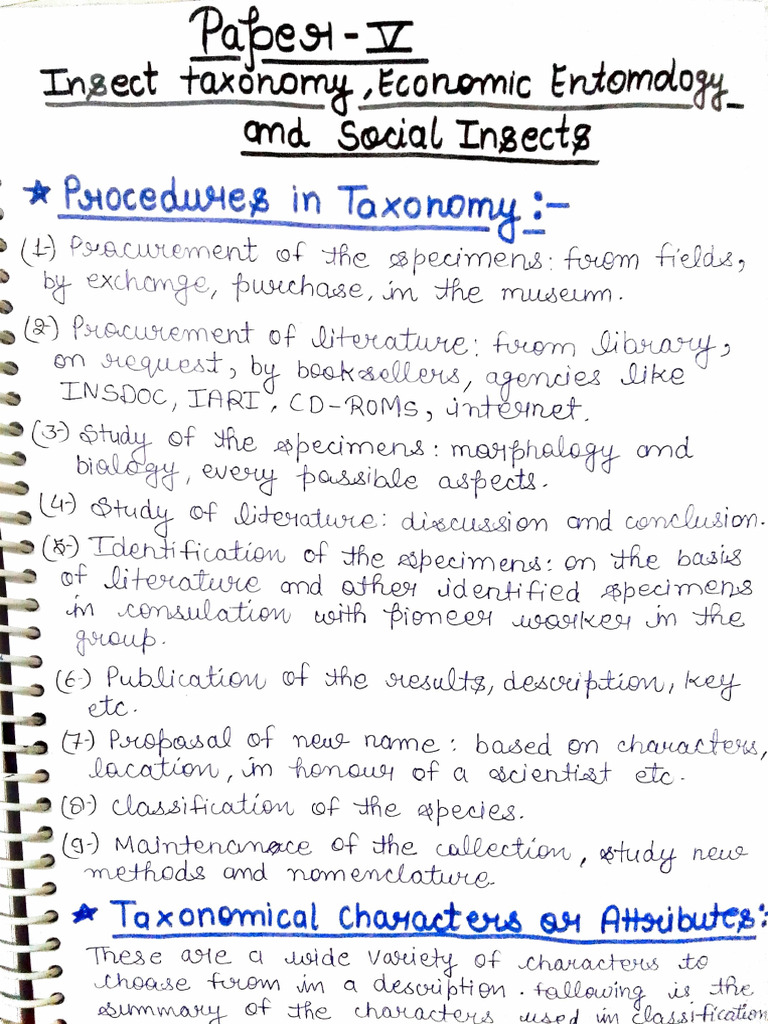 Paper-V
Insect taxonomy, Economic Entomology
and Social Insects
★ Procedures in Taxonomy:-
(1-) Procurement of the specimens: from fields,
by exchange, purchase, in the museum.
(2-) Procurement of literature: from library,
on request, by booksellers, agencies like
INSDOC, IARI, CD-ROMS, internet.
(3-) Study of the specimens: morphology and
biology, every possible aspects.
(4-) Study of literature: discussion and conclusion.
(5-) Identification of the specimens: on the basis
of literature and other identified specimens
in consulation with pioneer worker in the
group.
(6-) Publication of the results, description, key
etc.
(7-) Proposal of new name: based on characters,
location, in honour of a scientist etc.
(8-) Classification of the species.
(9-) Maintenance of the collection, study new
methods and nomenclature.
★ Taxonomical Characters or Attributes:
These are a wide variety of characters to
choose from in a description. Following is the
summary of the characters used in classification